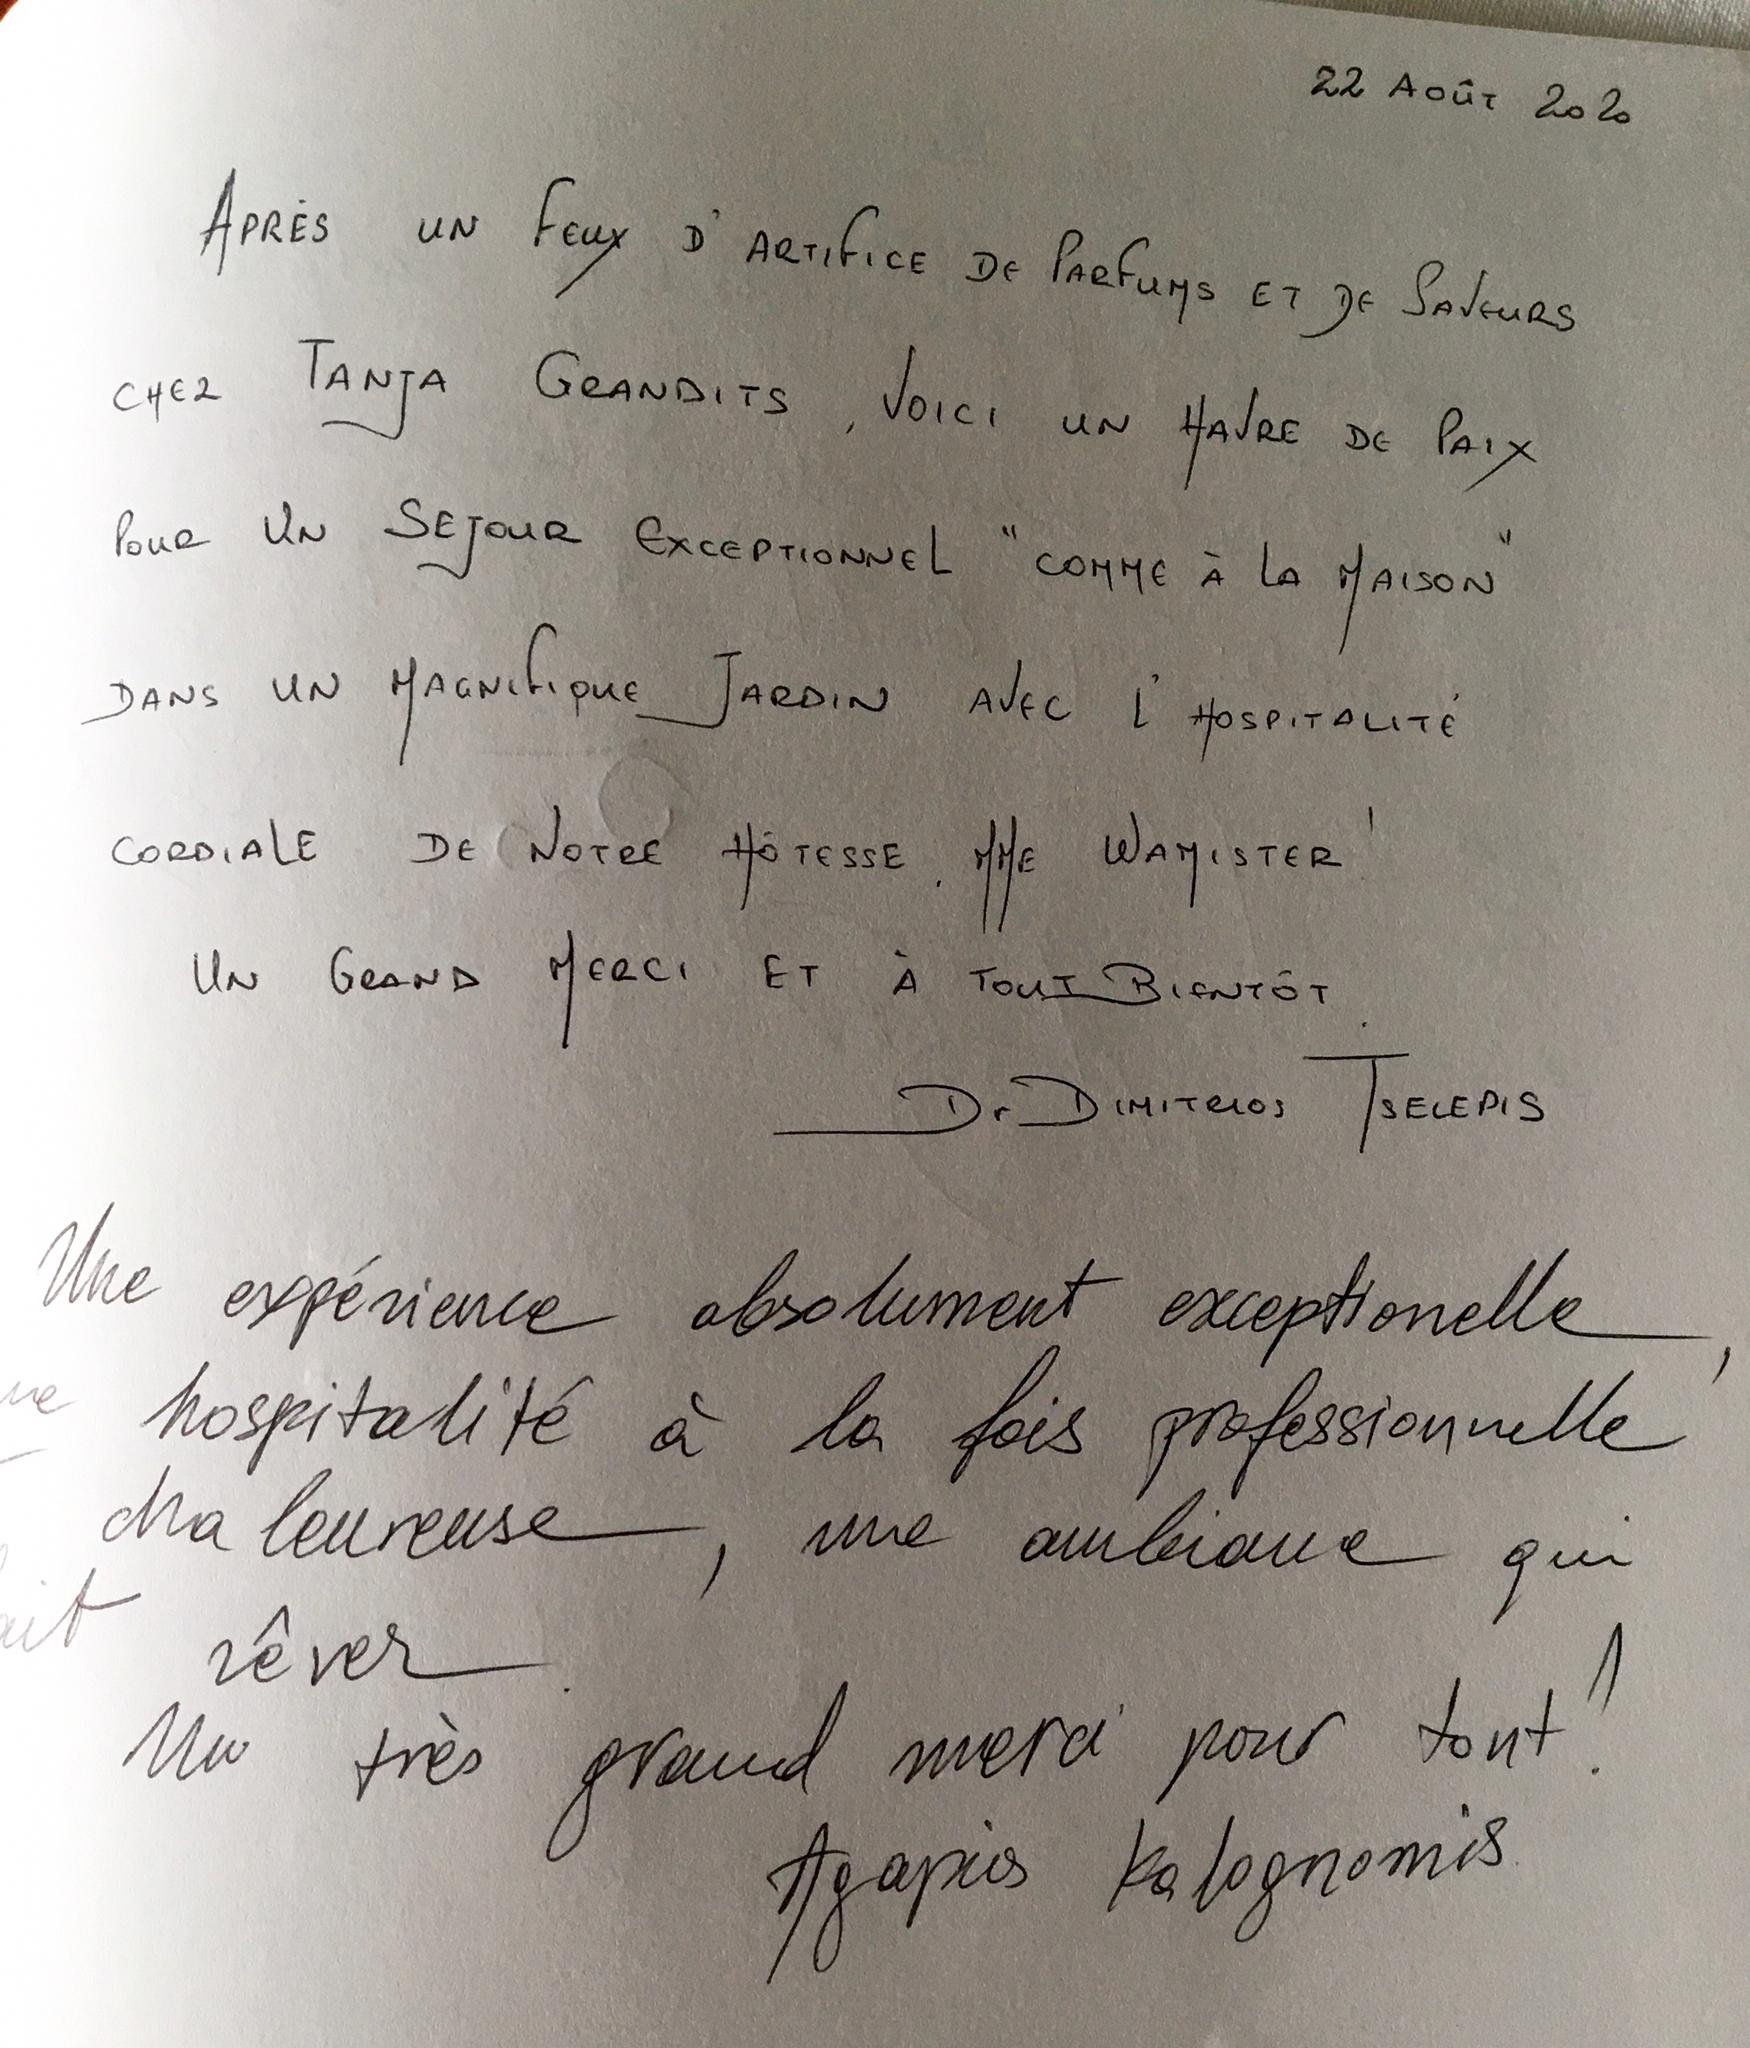 22 Août 2020
Après un feux d'artifice de parfums et de saveurs
chez Tanja Grandits, voici un havre de paix
pour un sejour exceptionnel "comme à la maison"
dans un magnifique jardin avec l'hospitalité
cordiale de notre hôtesse. Mme Wamister!
Un grand merci et à tout bientôt.
Dr Dimitrios Tselepis
Une expérience absolument exceptionelle,
hospitalité à la fois professionnelle
chaleureuse, une ambiance qui
rêver.
Un très grand merci pour tout!
Agapios Kalognomis